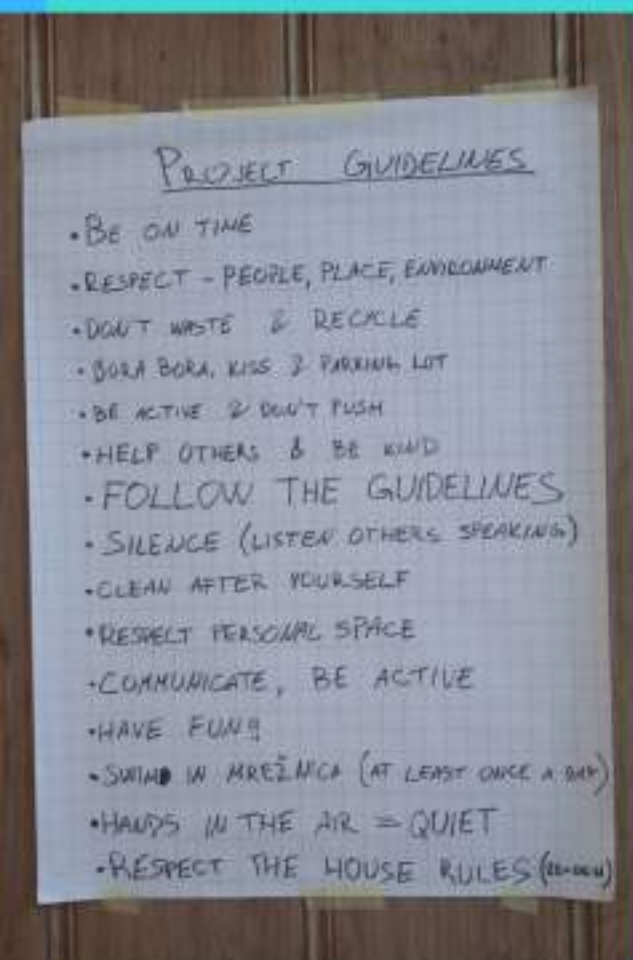 PROJECT GUIDELINES
• BE ON TIME
• RESPECT - PEOPLE, PLACE, ENVIRONMENT
• DON'T WASTE & RECYCLE
• BORA BORA, KISS & PARKING LOT
• BE ACTIVE & DON'T PUSH
• HELP OTHERS & BE KIND
• FOLLOW THE GUIDELINES
• SILENCE (LISTEN OTHERS SPEAKING)
• CLEAN AFTER YOURSELF
• RESPECT PERSONAL SPACE
• COMMUNICATE, BE ACTIVE
• HAVE FUN!
• SWIM IN MREŽNICA (AT LEAST ONCE A DAY)
• HANDS IN THE AIR = QUIET
• RESPECT THE HOUSE RULES